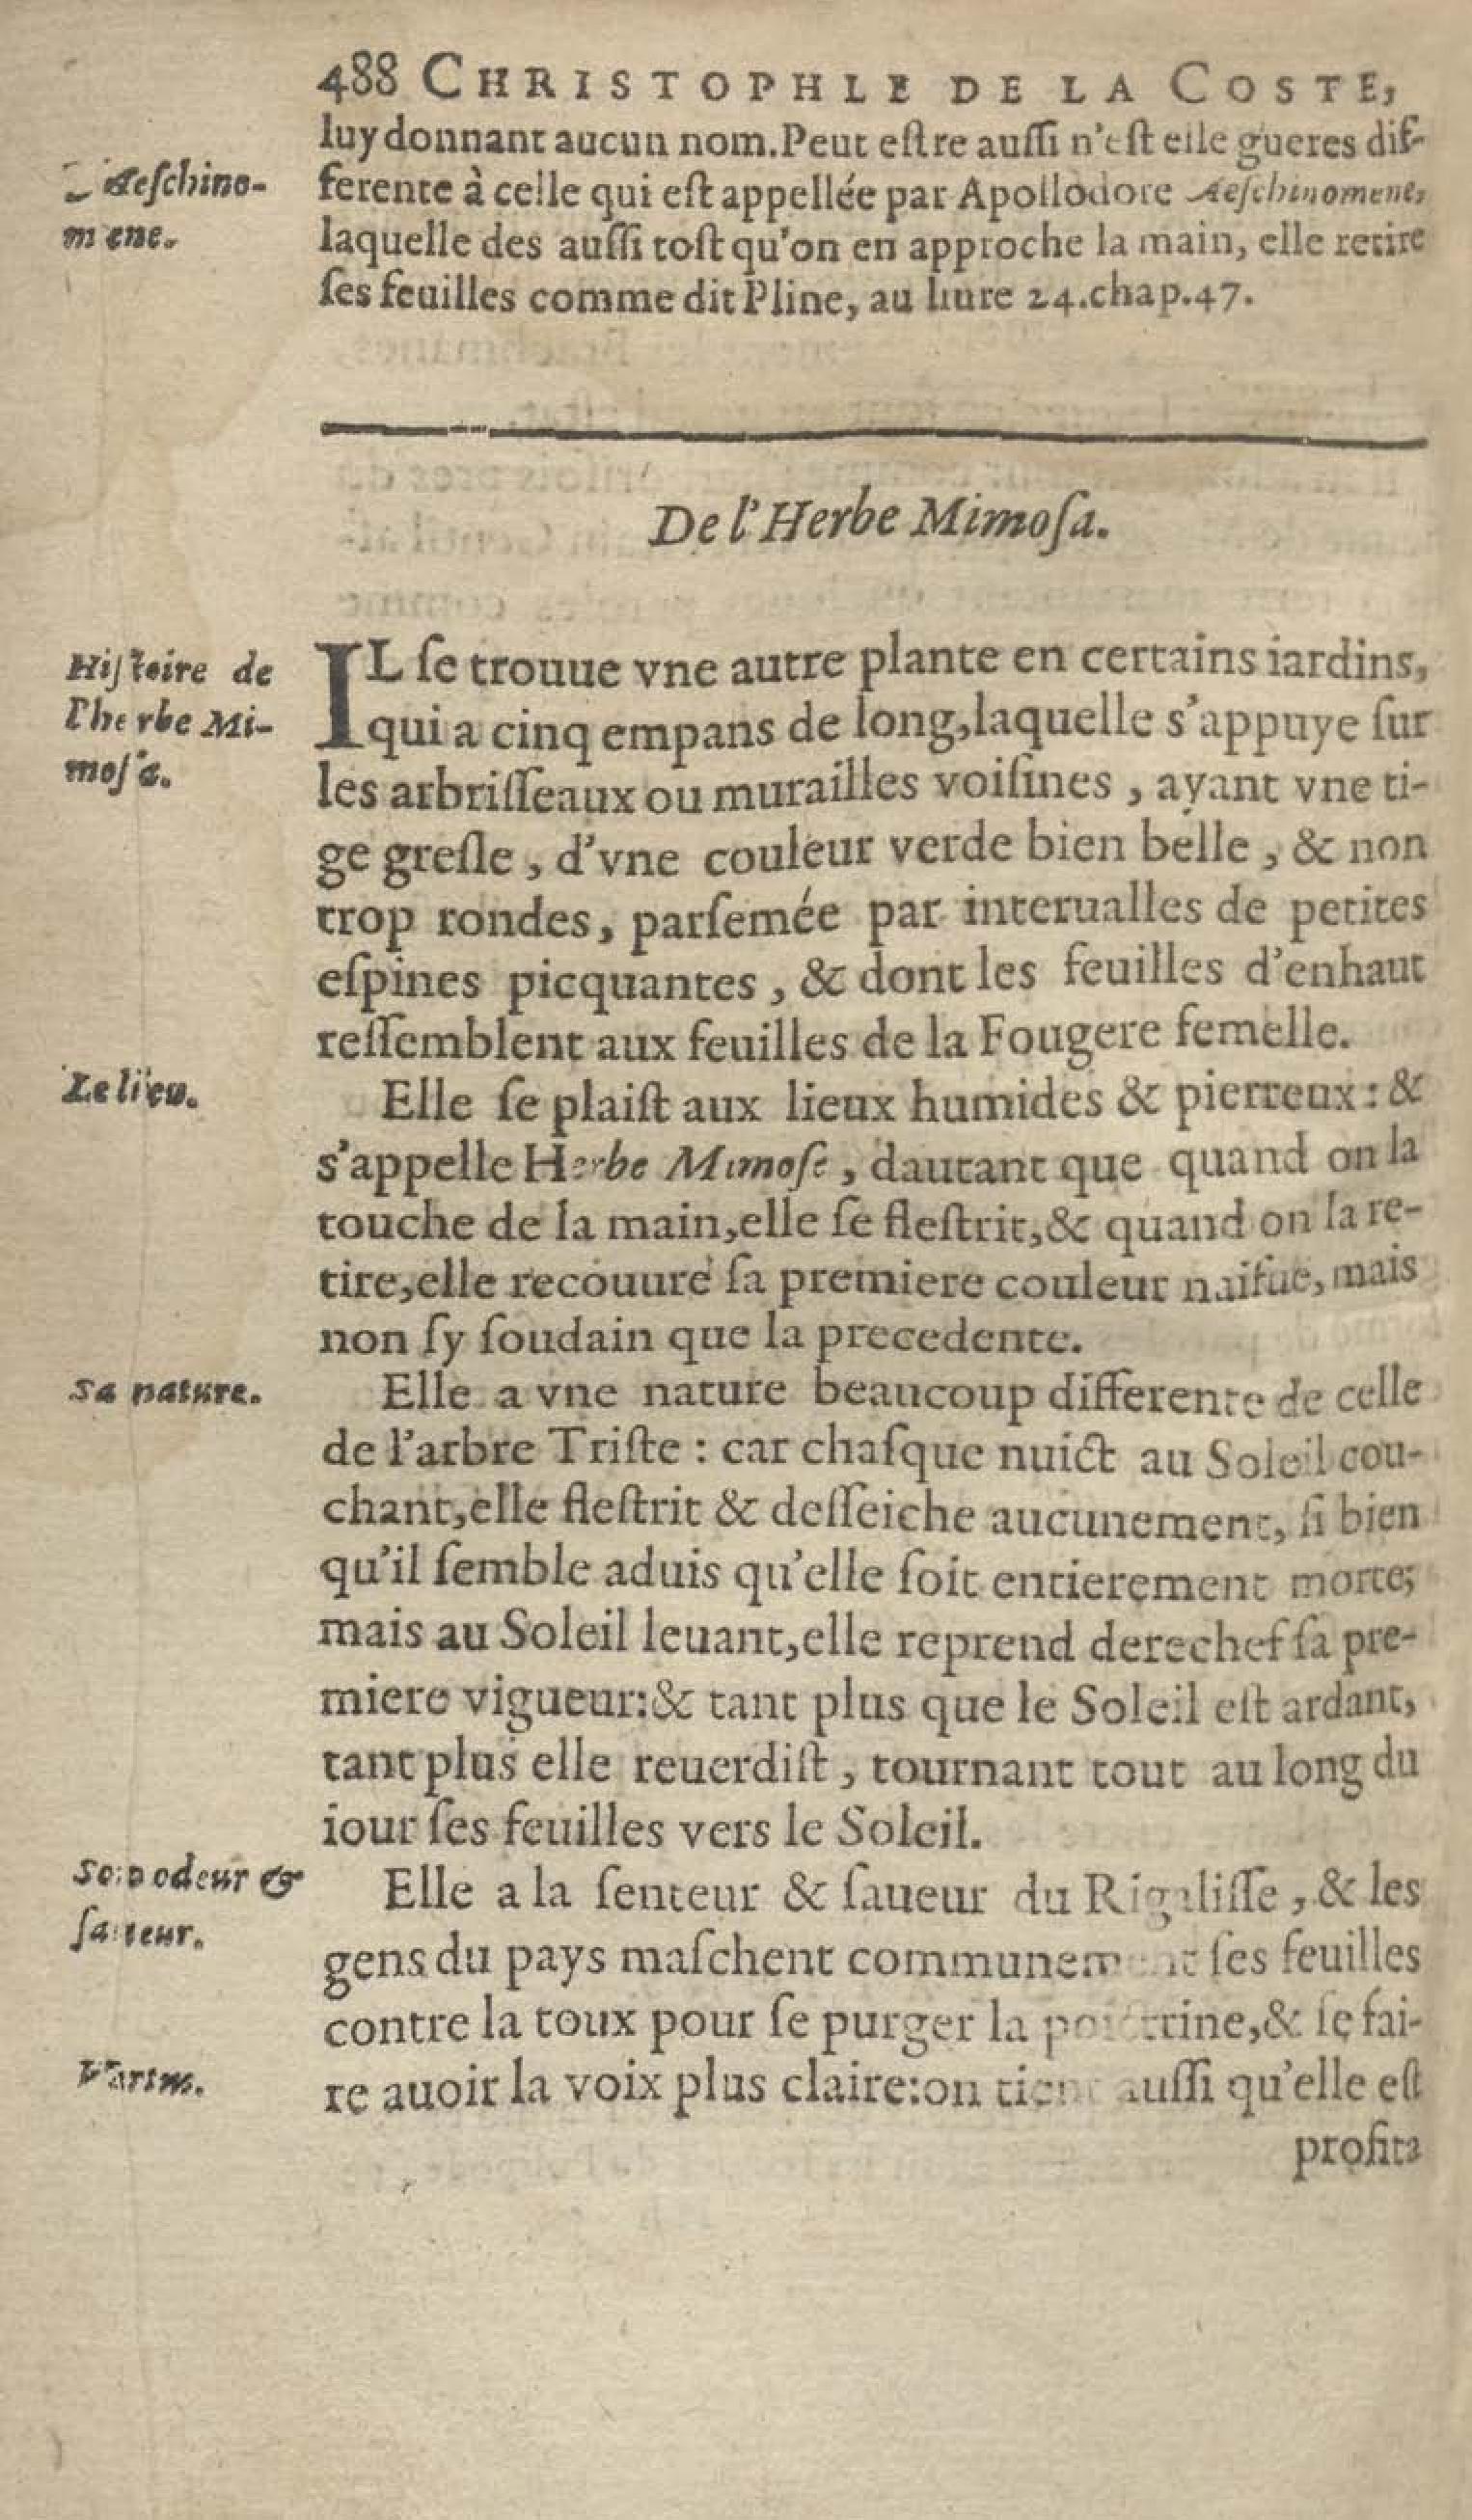 488 CHRISTOPHLE DE LA COSTE,
luy donnant aucun nom. Peut eſtre auſſi n'eſt elle gueres dif-
ferente à celle qui eſt appellée par Apollodore Aeſchinomene,
laquelle des auſſi toſt qu'on en approche la main, elle retire
ſes feuilles comme dit Pline, au liure 24. chap. 47.
Aeſchino-
mene.
De l'Herbe Mimoſa.
Hiſtoire de
l'herbe Mi-
moſa.
IL ſe trouue vne autre plante en certains iardins,
qui a cinq empans de long, laquelle s'appuye ſur
les arbriſſeaux ou murailles voiſines, ayant vne ti-
ge greſle, d'vne couleur verde bien belle, & non
trop rondes, parſemée par interualles de petites
eſpines picquantes, & dont les feuilles d'enhaut
reſſemblent aux feuilles de la Fougere femelle.
Le lieu.
Elle ſe plaiſt aux lieux humides & pierreux: &
s'appelle Herbe Mimoſe, dautant que quand on la
touche de la main, elle ſe fleſtrit, & quand on la re-
tire, elle recouure ſa premiere couleur naifue, mais
non ſy ſoudain que la precedente.
Sa nature.
Elle a vne nature beaucoup differente de celle
de l'arbre Triſte: car chaſque nuict au Soleil cou-
chant, elle fleſtrit & deſſeiche aucunement, ſi bien
qu'il ſemble aduis qu'elle ſoit entierement morte;
mais au Soleil leuant, elle reprend derechef ſa pre-
miere vigueur: & tant plus que le Soleil eſt ardant,
tant plus elle reuerdiſt, tournant tout au long du
iour ſes feuilles vers le Soleil.
Son odeur &
ſaueur.
Elle a la ſenteur & ſaueur du Rigaliſſe, & les
gens du pays maſchent communement ſes feuilles
contre la toux pour ſe purger la poictrine, & ſe fai-
re auoir la voix plus claire: on tient auſſi qu'elle eſt
profita